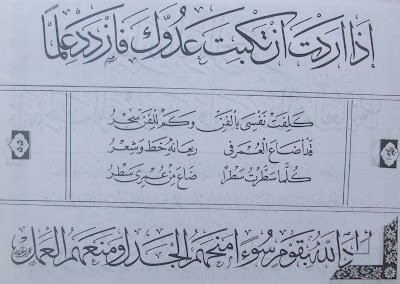 إذا اردت أن تكبت عدوّك فازدد علماً
كَلِفَتْ نفسي بالفنّ وكم للفن سحرُ
قد أضاع العمر في ريعانه خط وشعرُ
كلّما سطرت سطراً ضاع من عمري سطرُ
إذا أراد الله بقوم سوءاً منحهم الجدل ومنعهم العمل